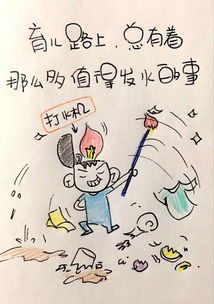 育儿路上，总有着
那么多值得发火的事
打火机